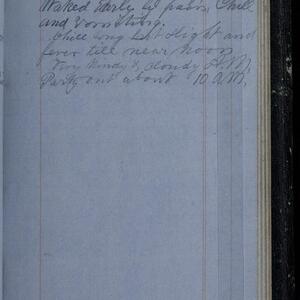 Waked early by pain, Chill
and
Chill long but slight and
fever till near noon
Very windy & cloudy A.M.
Party out about 10 A.M.